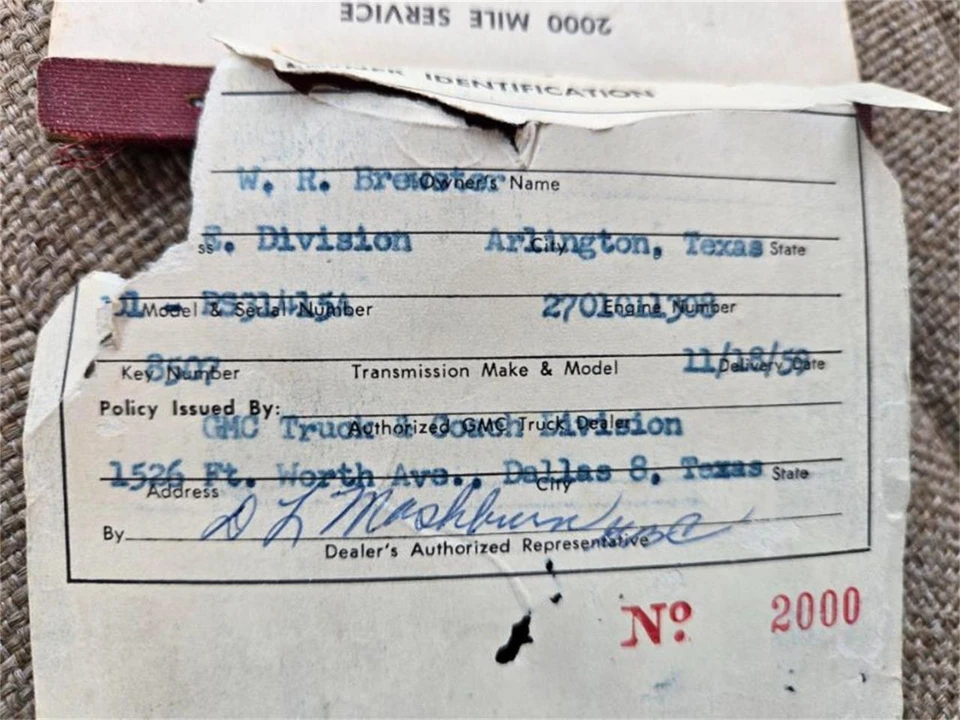 2000 MILE SERVICE
IDENTIFICATION
W. R. Brewster
Owner's Name
. Division Arlington, Texas
ss City State
Model & Serial Number Engine Number
8507 11/18/59
Key Number Transmission Make & Model Delivery Date
Policy Issued By:
GMC Truck & Coach Division
Authorized GMC Truck Dealer
1526 Ft. Worth Ave., Dallas 8, Texas
Address City State
By D L Mashburn
Dealer's Authorized Representative
No. 2000